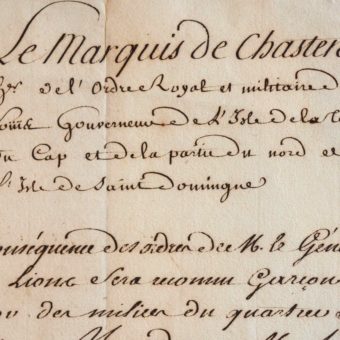 Le Marquis de Chaste
de l'Ordre Royal et militaire de
Gouverneur de L'Isle de la
du Cap et de la partie du nord de
L'Isle de Saint Domingue
onséquence des ordres de M. le Géné
Lionc sera reconnu Garçon
des milices du quartier